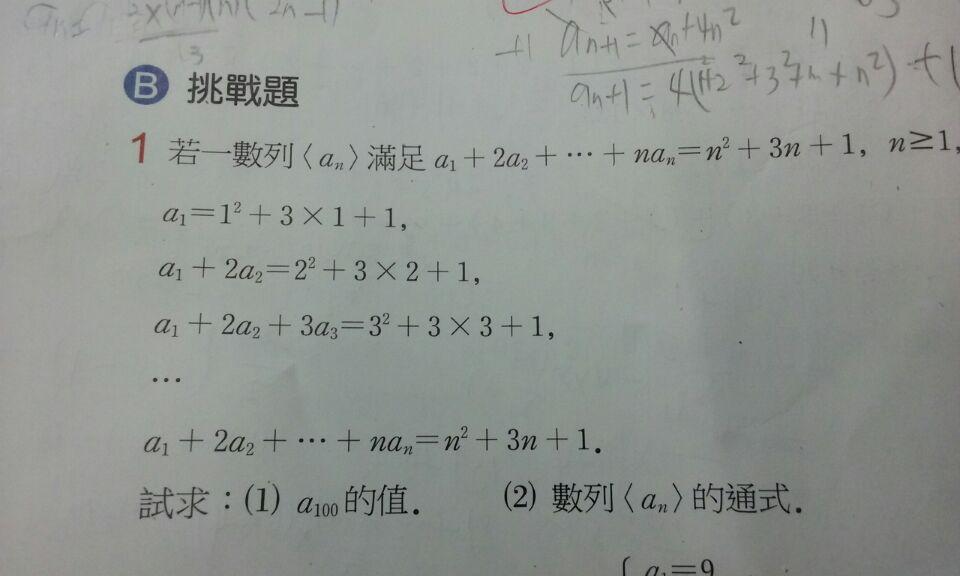 an+1 = an+4n²
an+1 = 4(1²+2²+3²+ + n²) + 1
B 挑戰題
1 若一數列〈aₙ〉滿足 a₁ + 2a₂ + ⋯ + naₙ=n² + 3n + 1, n≥1,
a₁=1² + 3 × 1 + 1,
a₁ + 2a₂=2² + 3 × 2 + 1,
a₁ + 2a₂ + 3a₃=3² + 3 × 3 + 1,
⋯
a₁ + 2a₂ + ⋯ + naₙ=n² + 3n + 1.
試求：(1) a₁₀₀的值. (2) 數列〈aₙ〉的通式.
a₁=9